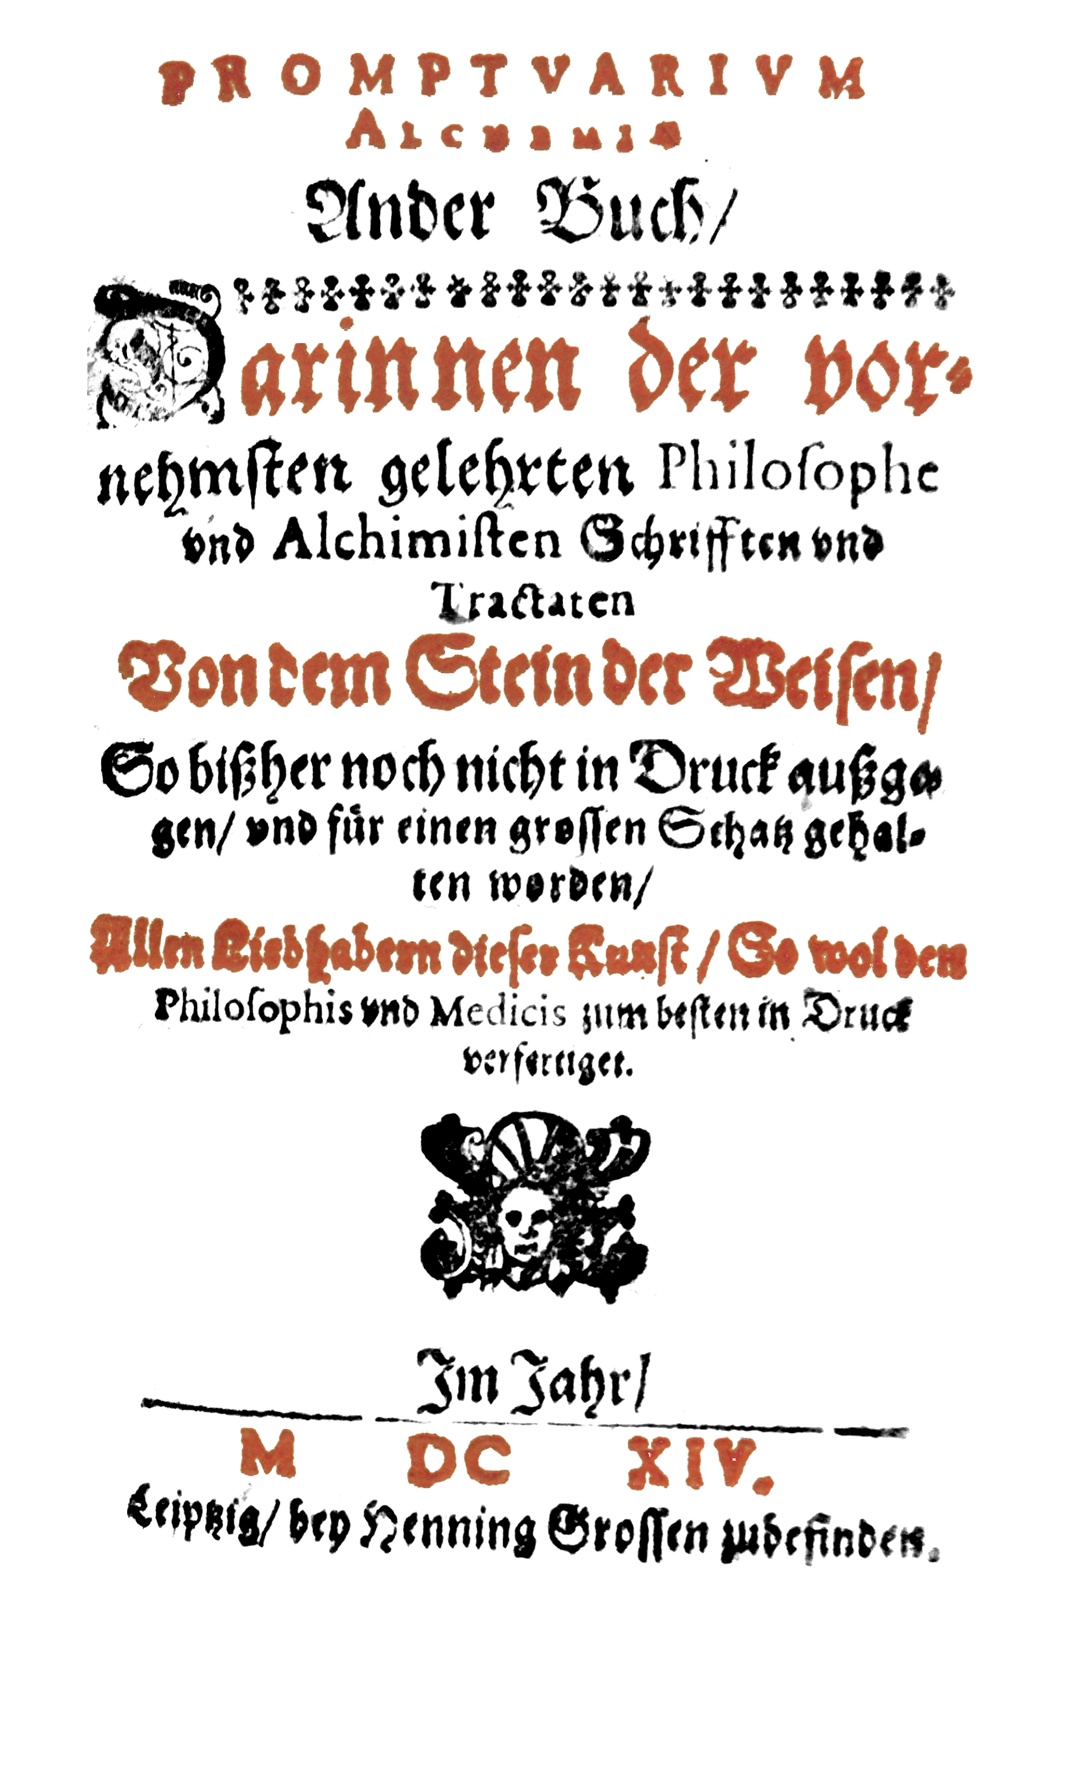 PROMPTVARIVM
ALCHEMIÆ
Ander Buch/
Darinnen der vor-
nehmſten gelehrten Philoſophe
vnd Alchimiſten Schrifften vnd
Tractaten
Von dem Stein der Weiſen/
So bißher noch nicht in Druck außgan-
gen/ vnd für einen groſſen Schatz gehal-
ten worden/
Allen Liebhabern dieſer Kunſt / So wol den
Philoſophis vnd Medicis zum beſten in Druck
verfertiget.
Im Jahr/
M DC XIV.
Leipzig/ bey Henning Groſſen zubefinden.